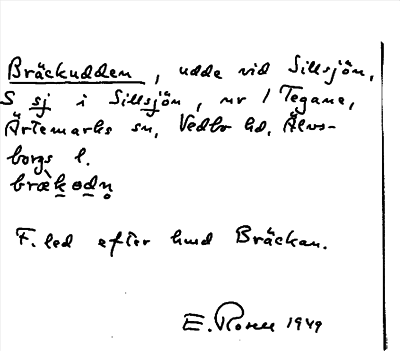 Bräckudden, udde vid Sillsjön,
S sj i Sillsjön, nr 1 Tegane,
Ärtemarks sn, Vedbo hd, Älvs-
borgs l.
bræ̀k ɵdn̥
F. led efter lund Bräckan.
E. Rosell 1949